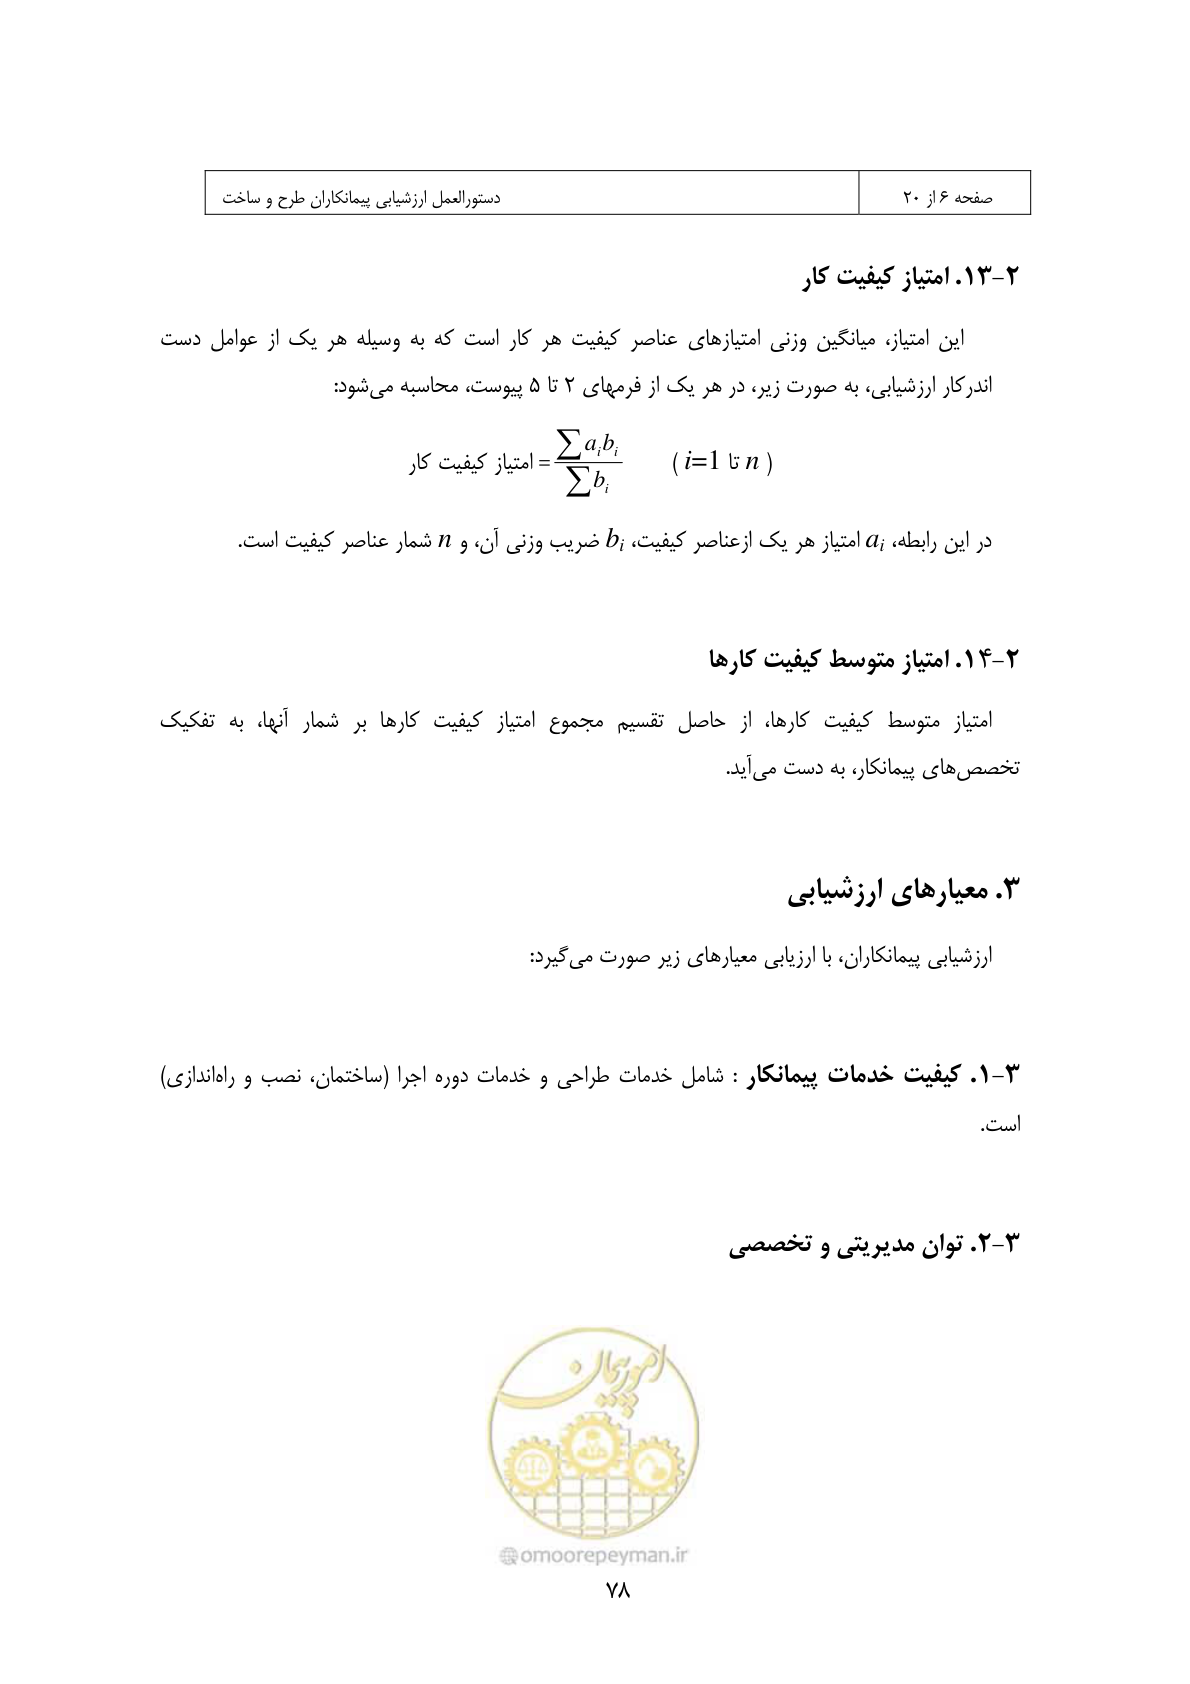 صفحه ۶ از ۲۰
دستورالعمل ارزشیابی پیمانکاران طرح و ساخت
۲-۱۳. امتیاز کیفیت کار
این امتیاز، میانگین وزنی امتیازهای عناصر کیفیت هر کار است که به وسیله هر یک از عوامل دست
اندرکار ارزشیابی، به صورت زیر، در هر یک از فرمهای ۲ تا ۵ پیوست، محاسبه می‌شود:
امتیاز کیفیت کار = ∑aᵢbᵢ / ∑bᵢ ( i=1 تا n )
در این رابطه، aᵢ امتیاز هر یک ازعناصر کیفیت، bᵢ ضریب وزنی آن، و n شمار عناصر کیفیت است.
۲-۱۴. امتیاز متوسط کیفیت کارها
امتیاز متوسط کیفیت کارها، از حاصل تقسیم مجموع امتیاز کیفیت کارها بر شمار آنها، به تفکیک
تخصص‌های پیمانکار، به دست می‌آید.
۳. معیارهای ارزشیابی
ارزشیابی پیمانکاران، با ارزیابی معیارهای زیر صورت می‌گیرد:
۳-۱. کیفیت خدمات پیمانکار : شامل خدمات طراحی و خدمات دوره اجرا (ساختمان، نصب و راه‌اندازی)
است.
۳-۲. توان مدیریتی و تخصصی
امور پیمان
@omoorepeyman.ir
۷۸